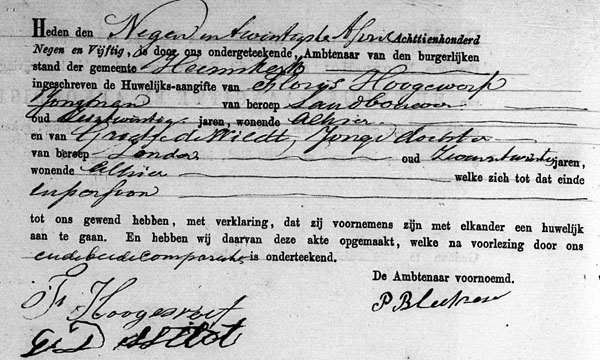 Heden den Negen en twintigste April Achttienhonderd
Negen en Vijftig, is door ons ondergeteekende, Ambtenaar van den burgerlijken
stand der gemeente Heemskerk
ingeschreven de Huwelijks-aangifte van Florys Hoogewerf
Jongman van beroep Landbouwer
oud jaren, wonende Alhier
en van Grietje de Wildt, Jonge dochter
van beroep Zonder oud jaren,
wonende Alhier welke zich tot dat einde
in persoon
tot ons gewend hebben, met verklaring, dat zij voornemens zijn met elkander een huwelijk
aan te gaan. En hebben wij daarvan deze akte opgemaakt, welke na voorlezing door ons
en de beide comparanten is onderteekend.
De Ambtenaar voornoemd.
F Hoogewerf